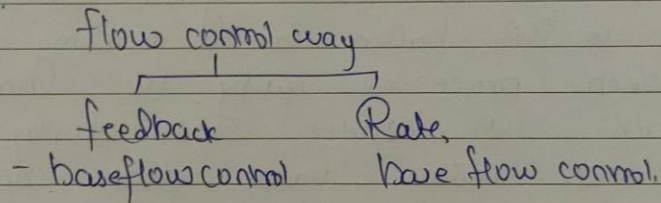 flow control way
feedback Rate,
- baseflow control base flow control.